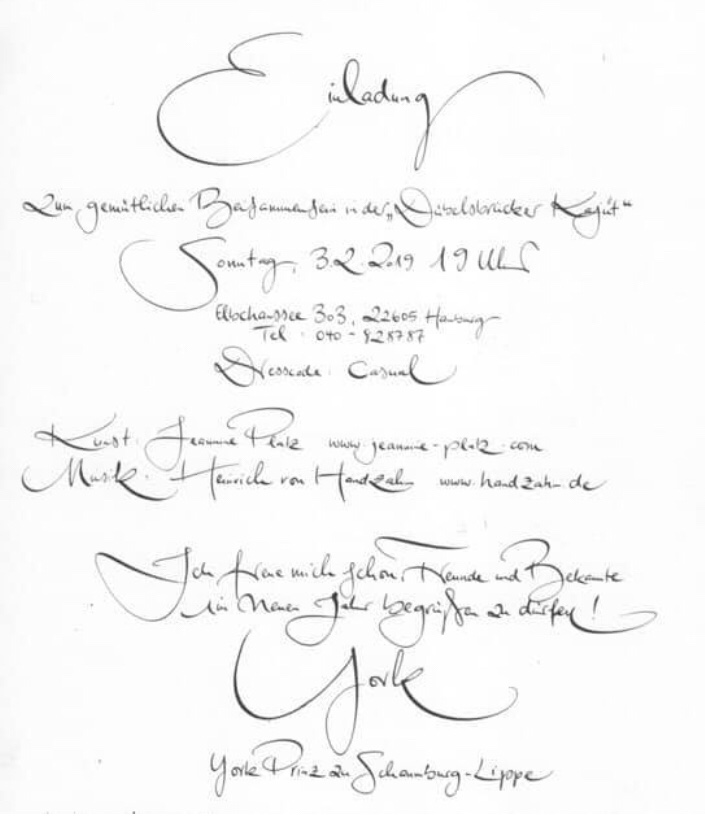 Einladung
zum gemütlichen Beisammensein in der „Dübelsbrücker Kajüt“
Sonntag, 3.2.2019 19 Uhr
Elbchaussee 303, 22605 Hamburg
Tel. 040 - 828787
Dresscode: Casual
Kunst: Jeannine Platz www.jeannine-platz.com
Musik: Heinrich von Handzahm www.handzahm.de
Ich freue mich schon, Freunde und Bekannte
im Neuen Jahr begrüßen zu dürfen!
York
York Prinz zu Schaumburg-Lippe